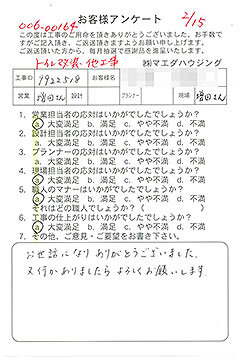 006-00164 2/15
お客様アンケート
この度は工事のご用命を頂きありがとうございました。お手数で
すがご記入頂き、ご返送頂きますようお願い申し上げます。
ご返送頂いた方から、毎月抽選で感謝品を進呈いたします。
トイレ改装・他工事 ㈱マエダハウジング
工事NO 9922518 お客様名
営業 増田さん 設計 プランナー 現場 増田さん
1. 営業担当者の応対はいかがでしたでしょうか?
a. 大変満足 b. 満足 c. やや不満 d. 不満
2. 設計担当者の応対はいかがでしたでしょうか?
a. 大変満足 b. 満足 c. やや不満 d. 不満
3. プランナーの応対はいかがでしたでしょうか?
a. 大変満足 b. 満足 c. やや不満 d. 不満
4. 現場担当者の応対はいかがでしたでしょうか?
a. 大変満足 b. 満足 c. やや不満 d. 不満
5. 職人のマナーはいかがでしたでしょうか?
a. 大変満足 b. 満足 c. やや不満 d. 不満
それはどの職人でしょうか? ( )
6. 工事の仕上がりはいかがでしたでしょうか?
a. 大変満足 b. 満足 c. やや不満 d. 不満
7. その他、ご意見・ご要望をお書き下さい。
お世話になりありがとうございました。
又何かありましたらよろしくお願いします。